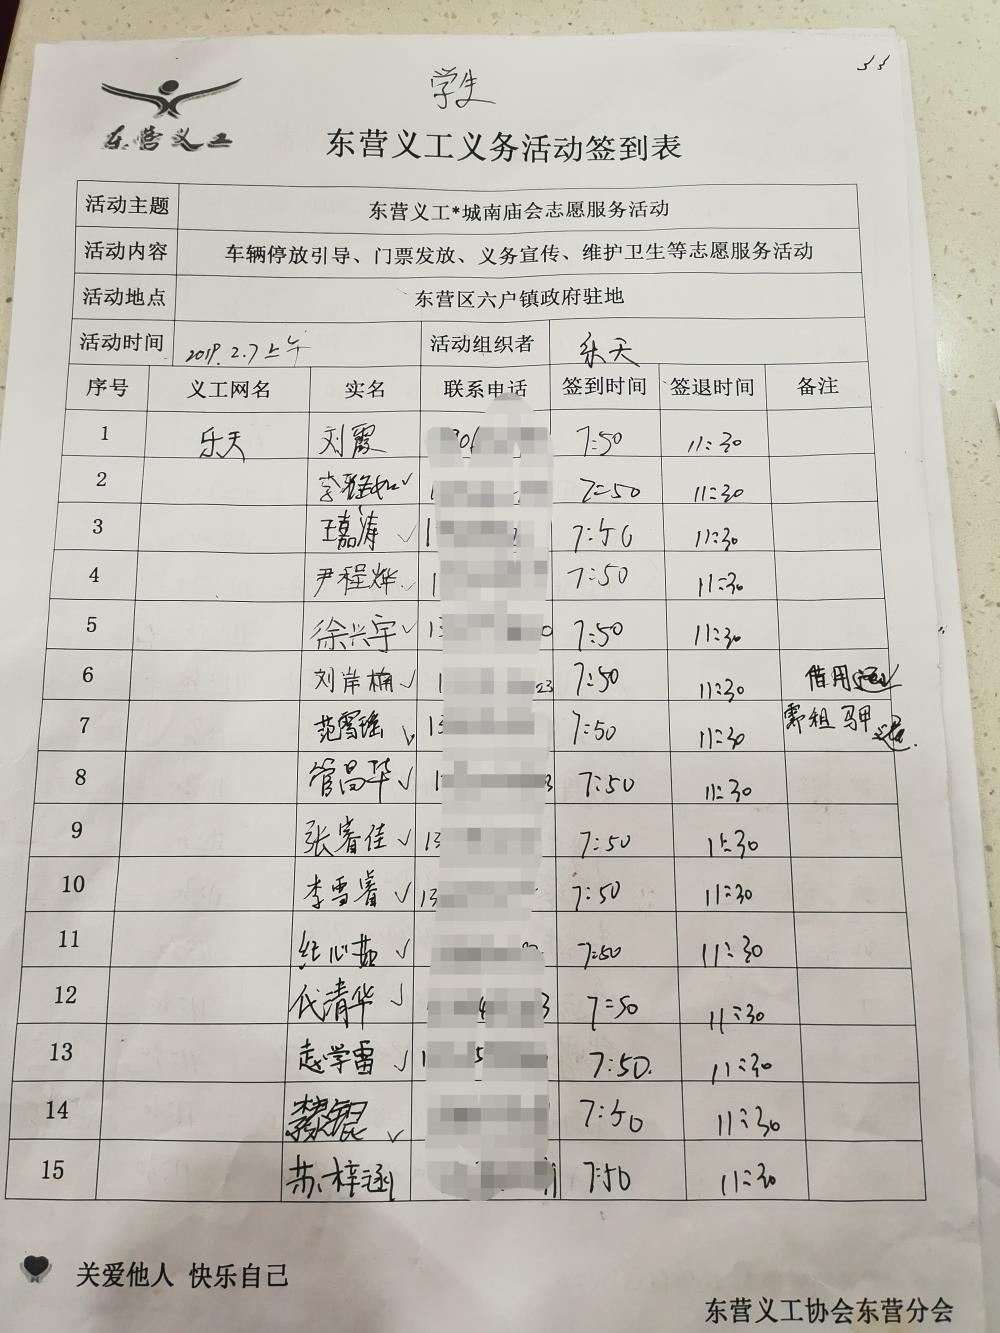 学生
东营义工
东营义工义务活动签到表
活动主题 东营义工*城南庙会志愿服务活动
活动内容 车辆停放引导、门票发放、义务宣传、维护卫生等志愿服务活动
活动地点 东营区六户镇政府驻地
活动时间 2019.2.7上午 活动组织者 乐天
序号 义工网名 实名 联系电话 签到时间 签退时间 备注
1 乐天 刘霞 7:50 11:30
2 李雅如 ✓ 7:50 11:30
3 王嘉涛 ✓ 1 7:50 11:30
4 尹程烨 ✓ 1 7:50 11:30
5 徐兴宇 ✓ 13 0 7:50 11:30
6 刘岸楠 ✓ 1 23 7:50 11:30 借用
7 范雪瑶 ✓ 13 7:50 11:30 马甲
8 管昌华 ✓ 1 3 7:50 11:30
9 张睿佳 ✓ 13 7:50 11:30
10 李雪睿 ✓ 13 7:50 11:30
11 纪心茹 ✓ 7:50 11:30
12 代清华 ✓ 3 7:50 11:30
13 赵学雷 ✓ 1 5 7:50. 11:30
14 ✓ 7:50 11:30
15 苏梓涵 7:50 11:30
关爱他人 快乐自己
东营义工协会东营分会